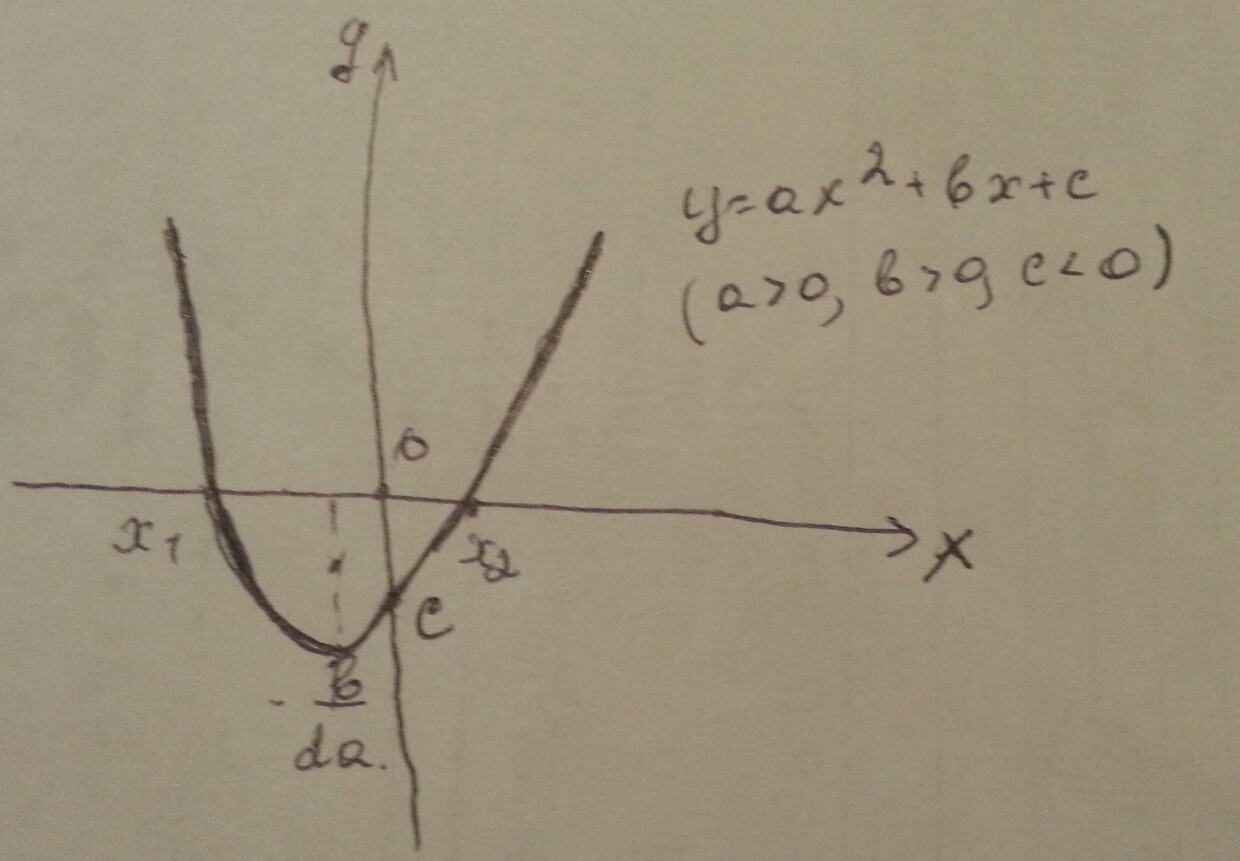 y
y=ax²+bx+c
(a>0, b>0, c<0)
0
x₁
x₂
x
c
-b/2a.